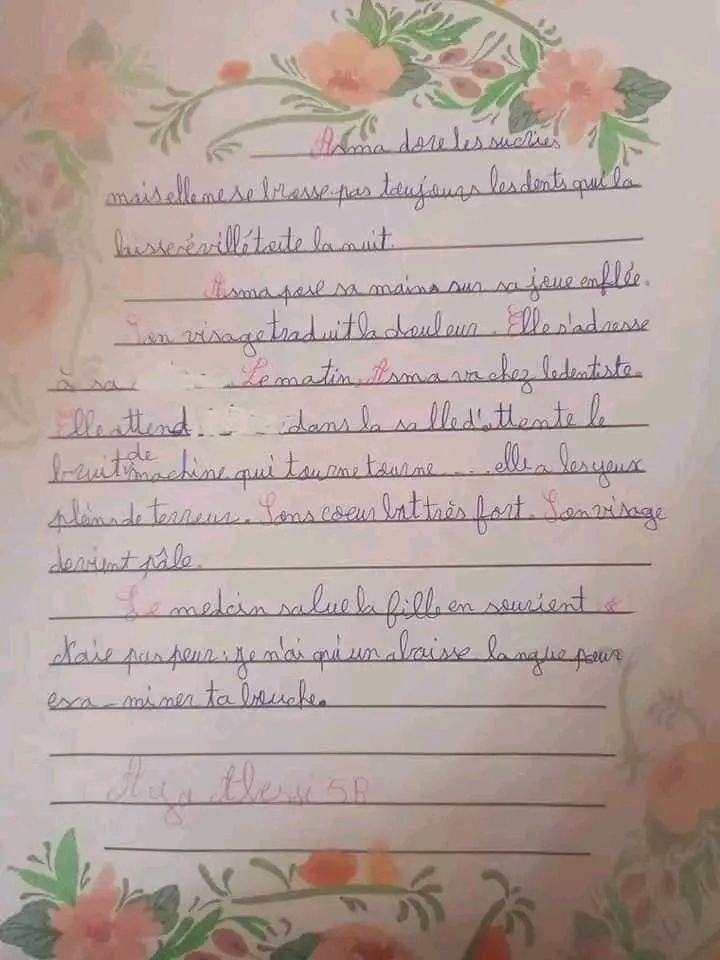 Asma dore les sucries
mais elle ne se brosse pas toujours les dents qui la
laisse évillé toute la nuit.
Asma pose sa mains sur sa joue enflée.
Son visage traduit la douleur. Elle s'adresse
à sa . Le matin, Asma va chez le dentiste.
Elle attend ... dans la salle d'attente le
bruit de machine qui tourne tourne ... elle a les yeux
pleins de terreur. Sons coeur bat très fort. Son visage
devient pâle.
Le medcin salue la fille en sourient
N'aie pas peur : je n'ai qu'un abaisse langue pour
exa-miner ta bouche.
5B